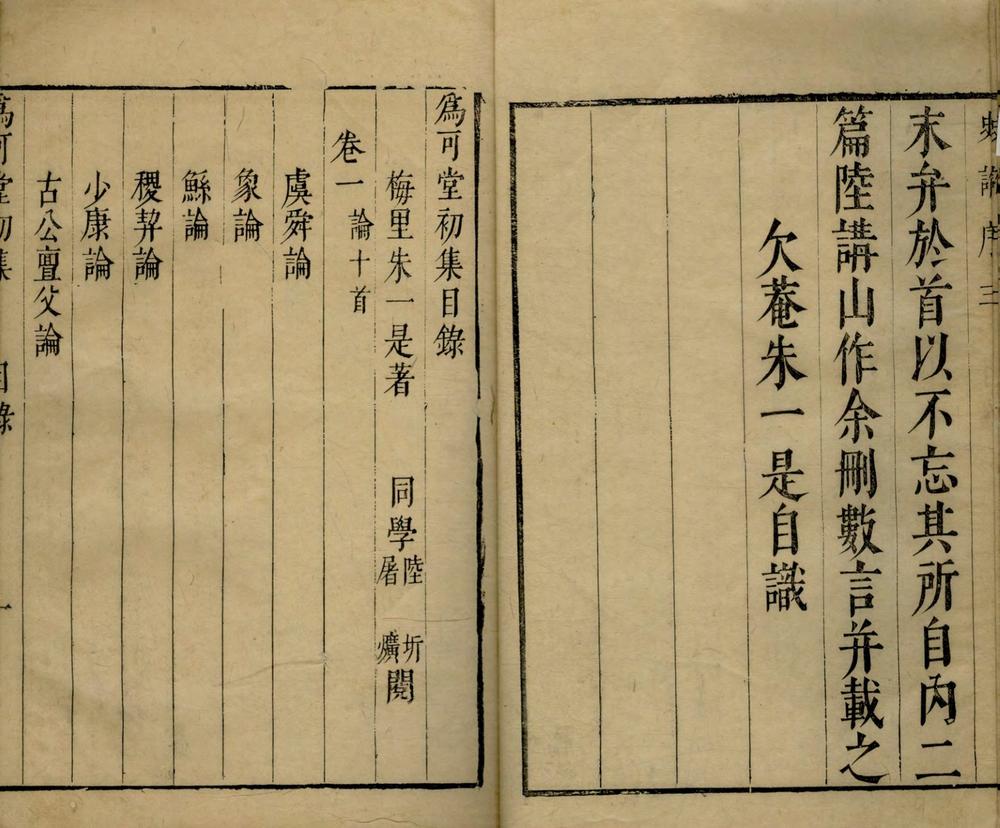 末弁於首以不忘其所自內二
篇陸講山作余刪數言并載之
欠菴朱一是自識
爲可堂初集目錄
梅里朱一是著 同學陸圻屠爌閱
卷一 論十首
虞舜論
象論
鯀論
稷契論
少康論
古公亶父論
爲可堂初集 目錄 一